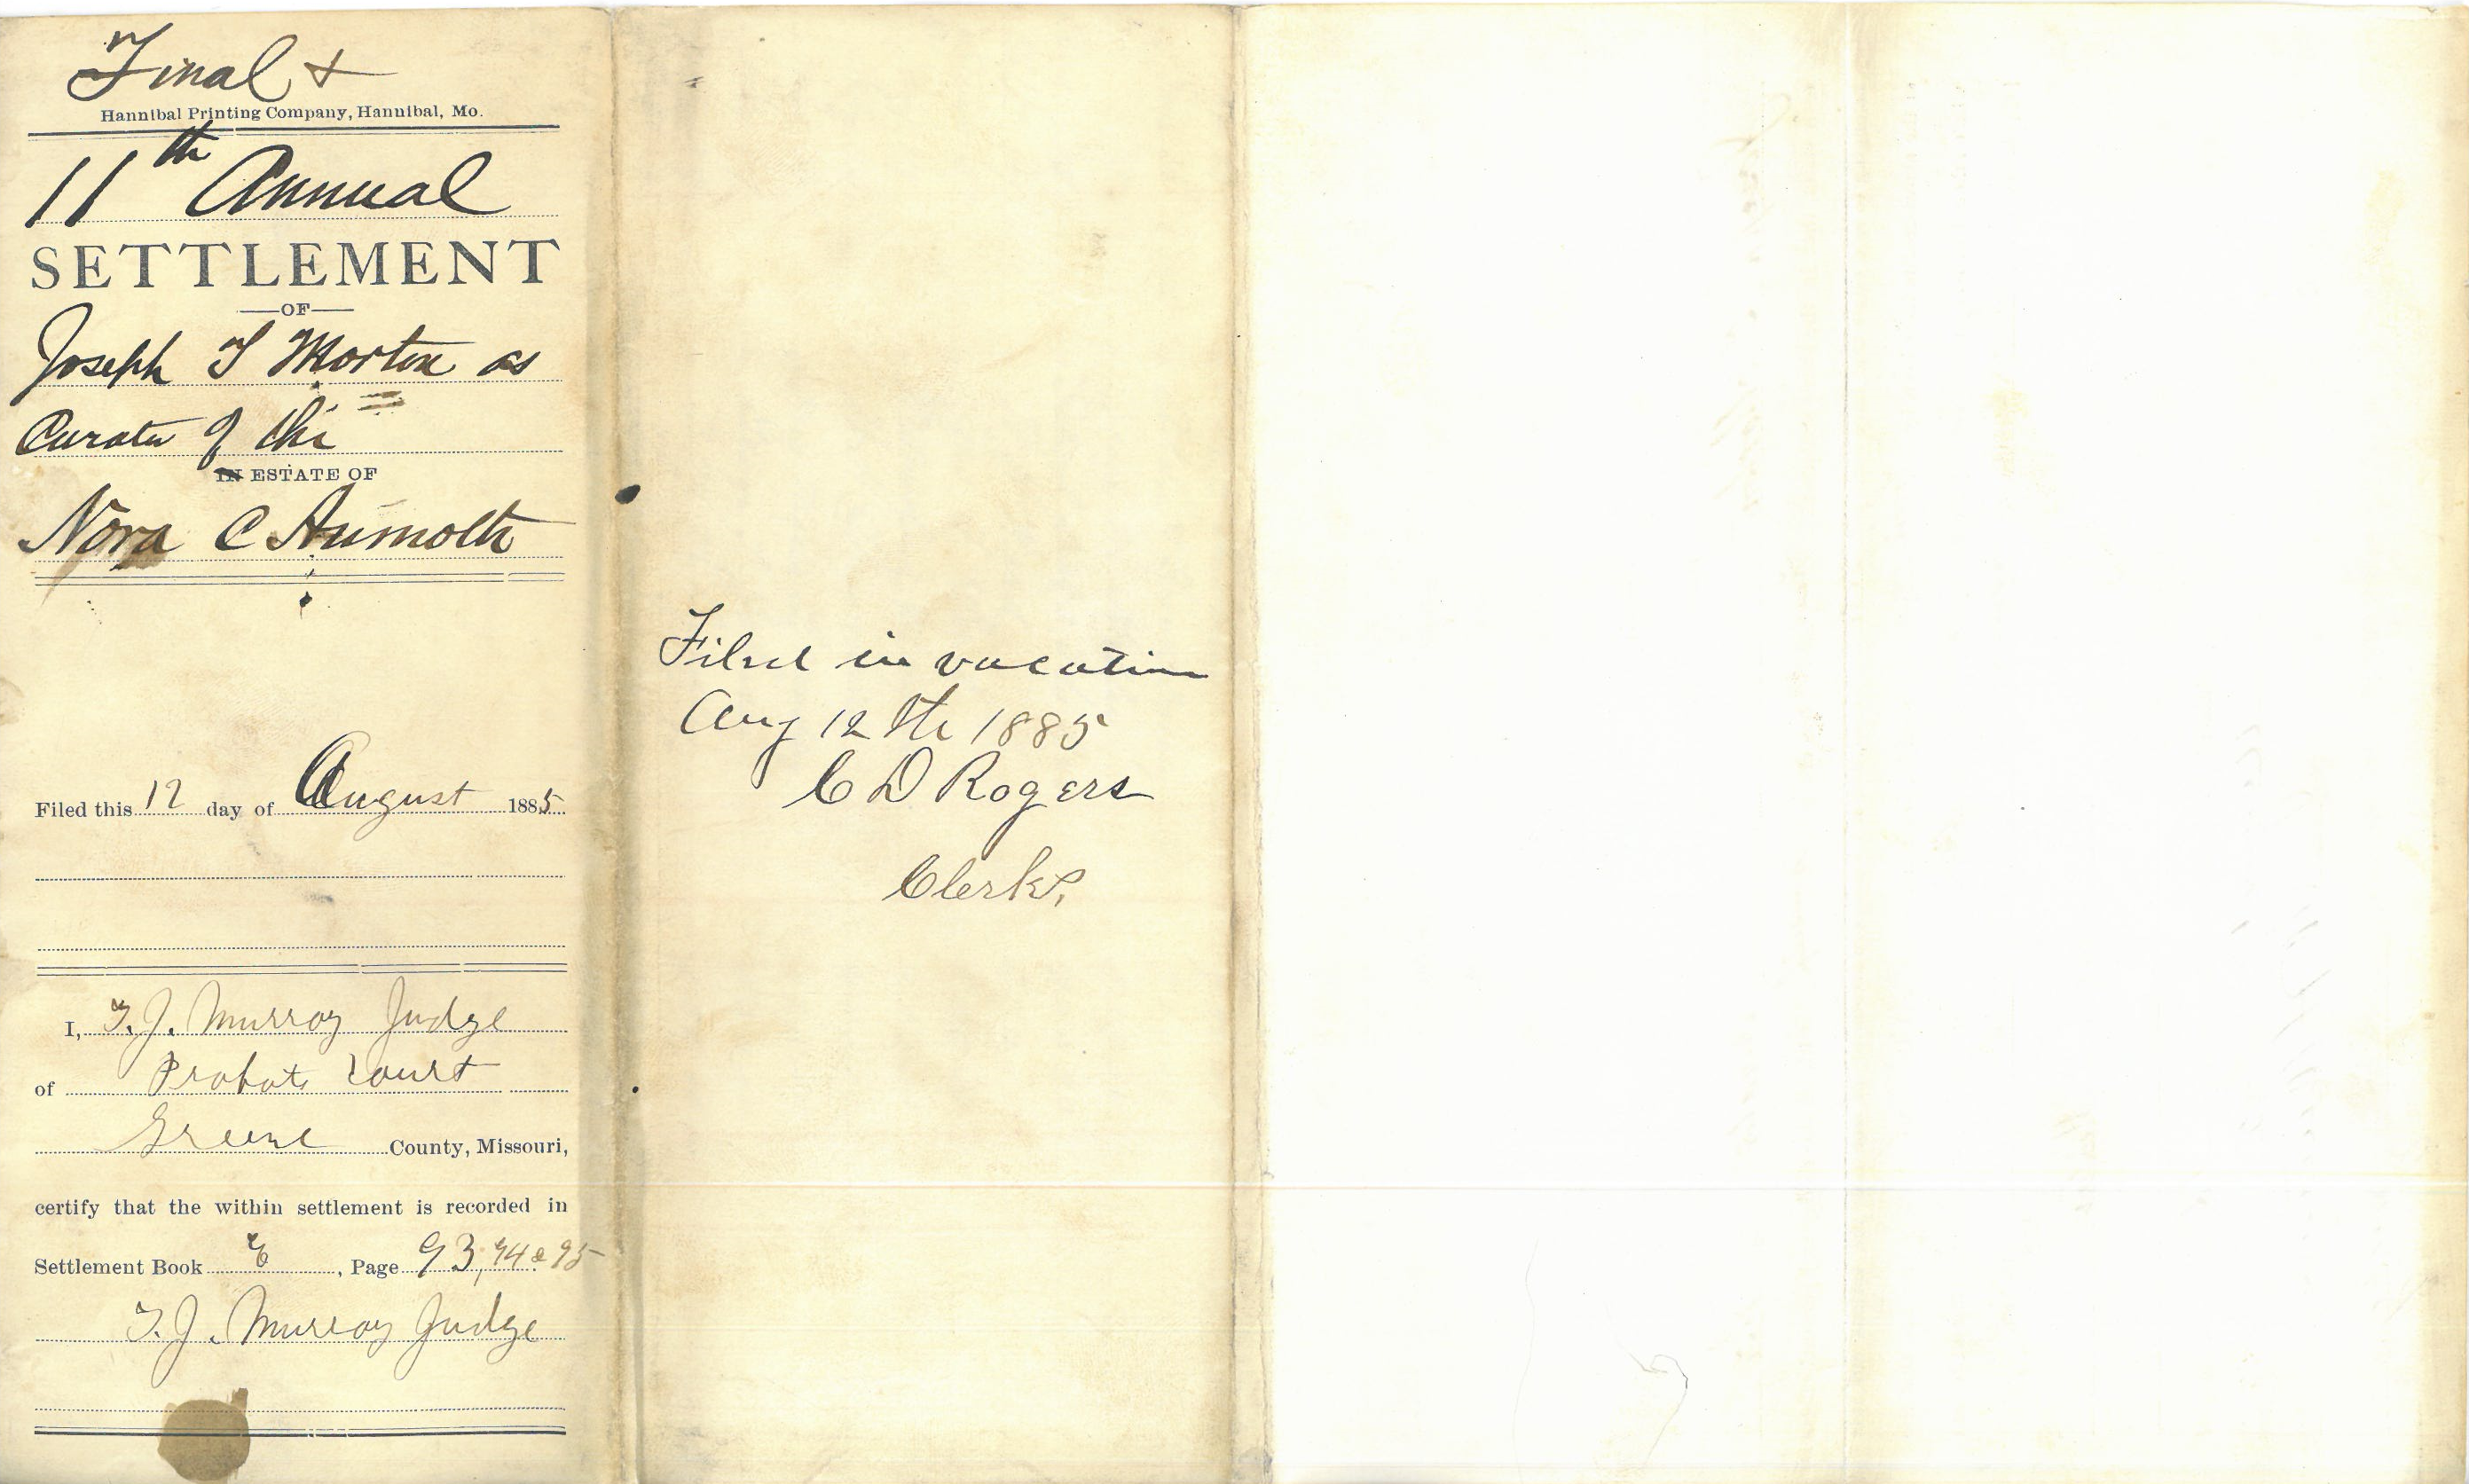 Final &
Hannibal Printing Company, Hannibal, Mo.
11th Annual
SETTLEMENT
—OF—
Joseph T Morton as
Curator of the
IN ESTATE OF
Nora C
Filed this 12 day of August 1885
I, T. J. Murray Judge
of Probate Court
Greene County, Missouri,
certify that the within settlement is recorded in
Settlement Book E, Page 93, 94 & 95
T. J. Murray Judge
Filed in vacation
Aug 12th 1885
C D Rogers
Clerk.